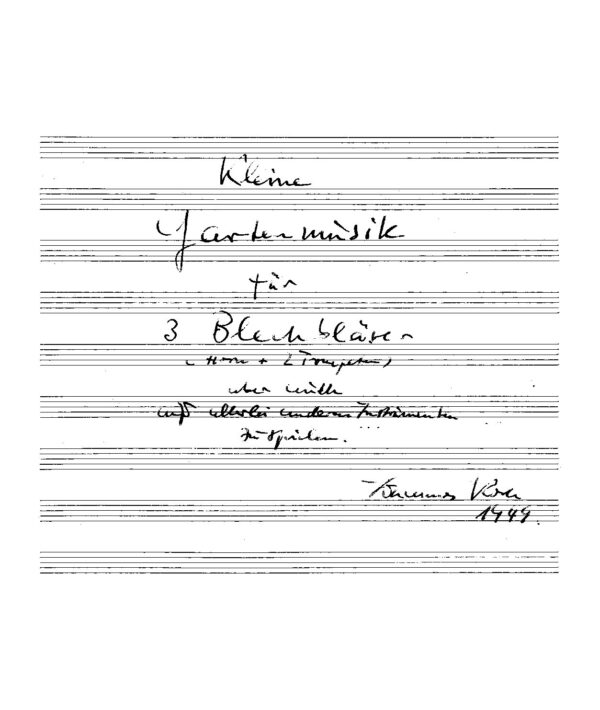 Kleine
Gartenmusik
für
3 Blechbläser
(Horn + 2 Trompeten)
aber
auf allerlei anderen Instrumenten
zu spielen.
Johannes Koch
1949.